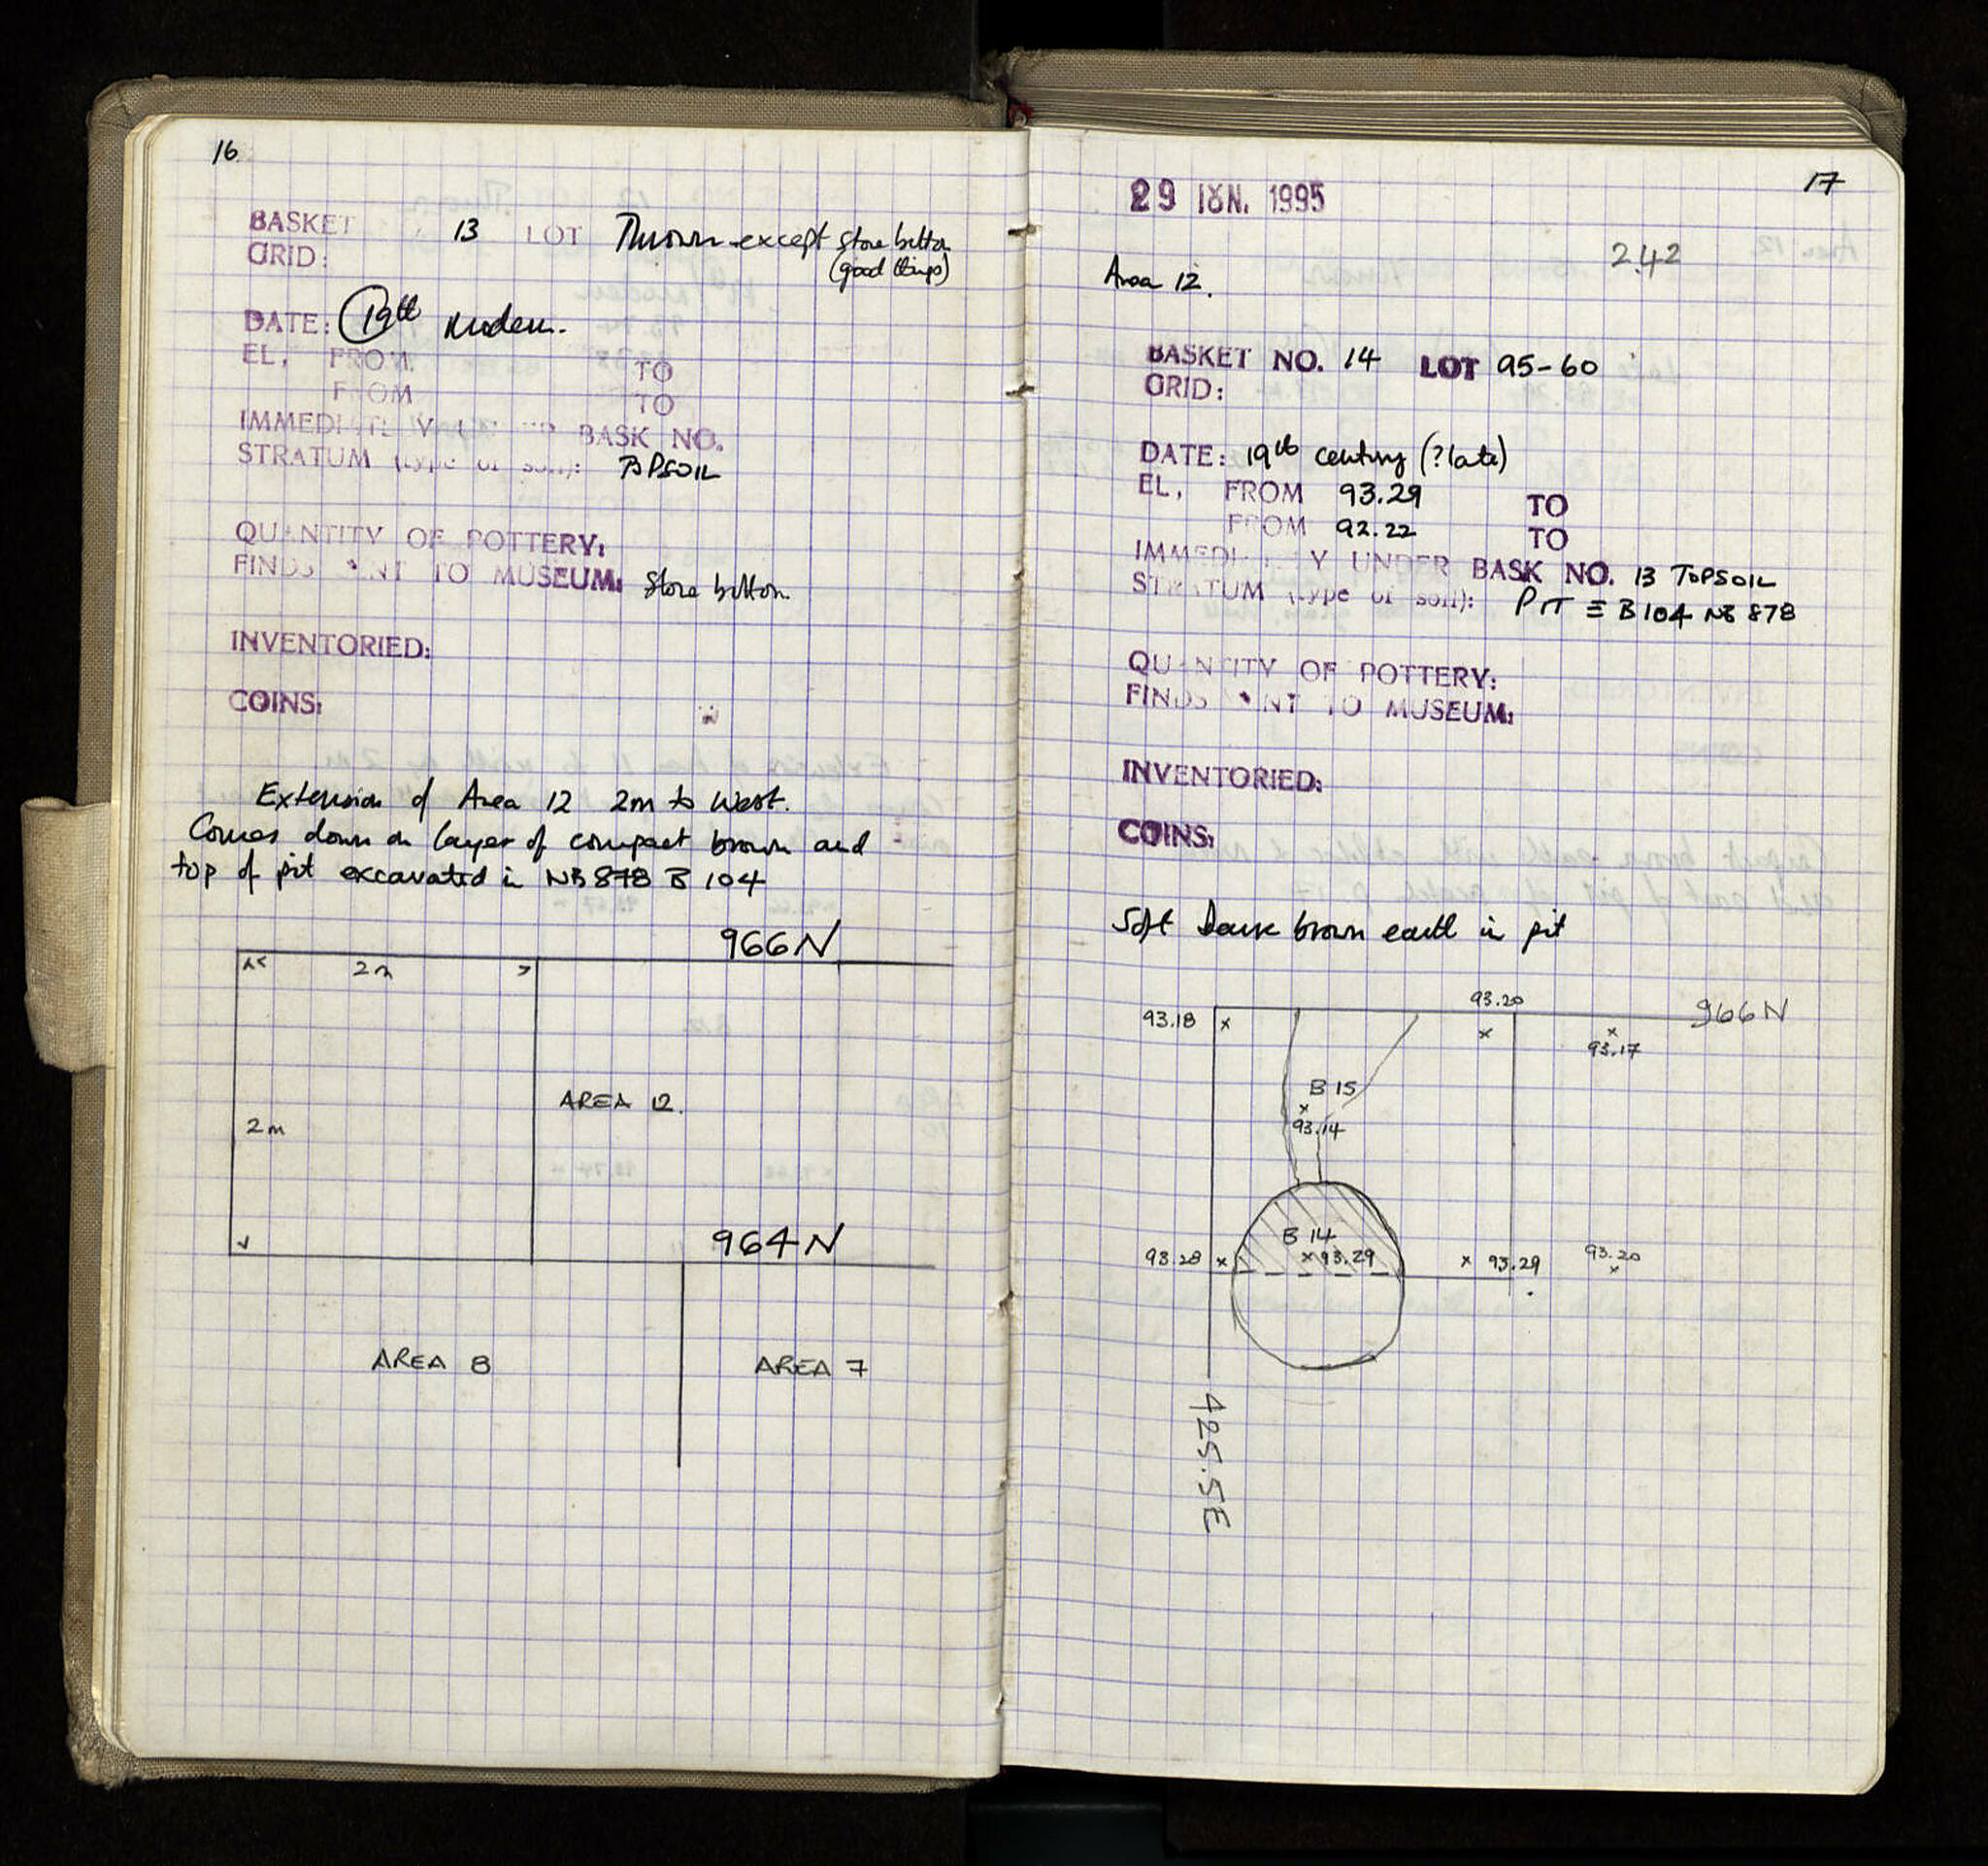 16
BASKET 13 LOT Thrown except stone button
GRID: (good things)
DATE: 19th Modern.
EL, FROM TO
FROM TO
IMMEDIATELY UNDER BASK NO.
STRATUM (type of soil): TOPSOIL
QUANTITY OF POTTERY:
FINDS SENT TO MUSEUM: Stone button
INVENTORIED:
COINS:
Extension of Area 12 2m to West.
Comes down on layer of compact brown and
top of pit excavated in NB 878 B 104
966 N
2m
AREA 12.
2m
964 N
AREA 8 AREA 7
17
29 IUN. 1995
2.42
Area 12.
BASKET NO. 14 LOT 95-60
GRID:
DATE: 19th century (?late)
EL, FROM 93.29 TO
FROM 92.22 TO
IMMEDIATELY UNDER BASK NO. 13 TOPSOIL
STRATUM (type of soil): PIT = B104 NB 878
QUANTITY OF POTTERY:
FINDS SENT TO MUSEUM:
INVENTORIED:
COINS:
Soft Dark brown earth in pit
93.20
93.18 966 N
93.17
B 15
93.14
B 14
93.28 93.29 93.29 93.20
425.5E